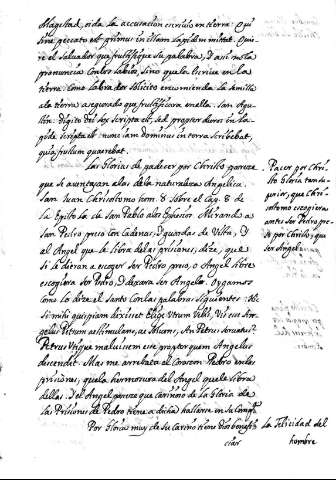 Magestad, oida la accusacion escriuio en tierra: Qui
sine peccato est primus in illam lapidem mittat. Quie-
re el saluador que frutifique su palabra, y assi no la
pronuncia con los labios, sino que la escriue en la
tierra. Como labrador solicito encomienda la semilla
a la tierra asegurado que frutificara en ella. San Agu-
stin. Digito Dei lex scripta est, sed propter duros in la-
pide scripta est: nunc iam dominus in terra scribebat,
quia fructum quaerebat.
Las Glorias de padecer por Christo parece
que se auentajan a las de la naturaleza Angelica.
San Juan Chrisostomo hom. 8 sobre el Cap. 8 de
la Epistola de San Pablo a los Ephesios Mirando a
San Pedro preso con Cadenas, y guardas de vista, y
al Angel que le libra de las prisiones, dize, que
si le dieran a escoger ser Pedro preso, o Angel libre
escogiera ser Pedro, y dexara ser Angel. Oygamos
como lo dize el Santo con las palabras siguientes:
si mihi quispiam dixisset Elige Utrum Velis, Vis esse An-
gelus Petrum stimulans, an Petrus seruatus?
Petrus Utique maluissem esse propter quem Angelus
descendit. Mas me arrebata el Corazon Pedro en las
prisiones, que la hermosura del Angel que le libra
dellas. Y el Angel parece que cariñoso de la Gloria de
las Prisiones de Pedro tiene a dicha hallarse en su
Por Gloria muy de su cariño tiene Dios
ciar
Padecer por Chri-
sto Gloria tan
que Chri-
sostomo escogiera
antes ser Pedro pre-
so por Christo, que
ser Angel.
La Felicidad del
hombre